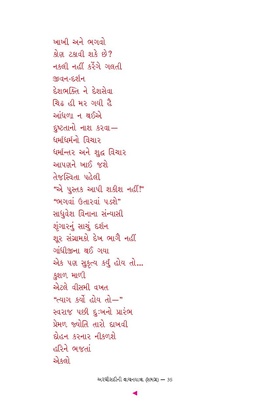 ખાખી અને ભગવો
કોણ ટકાવી શકે છે?
નકલી નહીં કરેંગે ગલતી
જીવન-દર્શન
દેશભક્તિ ને દેશસેવા
ચિઢ હી મર ગયી હૈ
આંધળા ન થઈએ
દુષ્ટતાનો નાશ કરવા—
ધર્માધર્મનો વિચાર
ધર્માન્તર અને શુદ્ધ વિચાર
આપણને ખાઈ જશે
તેજસ્વિતા પહેલી
“એ પુસ્તક આપી શકીશ નહીં!”
“ભગવાં ઉતારવાં પડશે”
સાધુવેશ વિનાના સંન્યાસી
શૃંગારનું સાચું દર્શન
શૂર સંગ્રામકો દેખ ભાગૈ નહીં
ગાંધીજીના થઈ ગયા
એક પણ સુકૃત્ય કર્યું હોય તો....
કુશળ માળી
એટલે વીસમી વખત
“ત્યાગ કર્યો હોય તો—”
સ્વરાજ પછી દુઃખનો પ્રારંભ
પ્રેમળ જ્યોતિ તારો દાખવી
દોહન કરનાર નીકળશે
હરિને ભજતાં
એકલો
અરધીસદીની વાચનયાત્રા (સમગ્ર) —